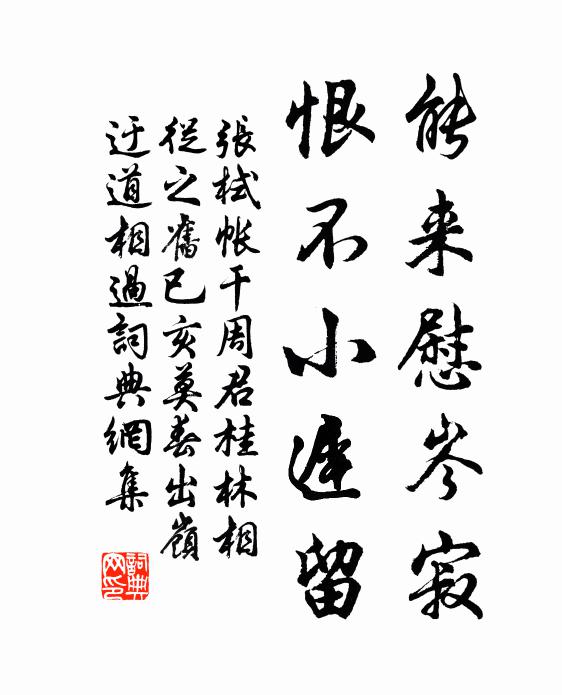 能来慰岑寂
恨不小遲留
張栻帐干周君桂林相
從之舊已亥莫春出嶺
迂道相過詞典網集
詞典網印